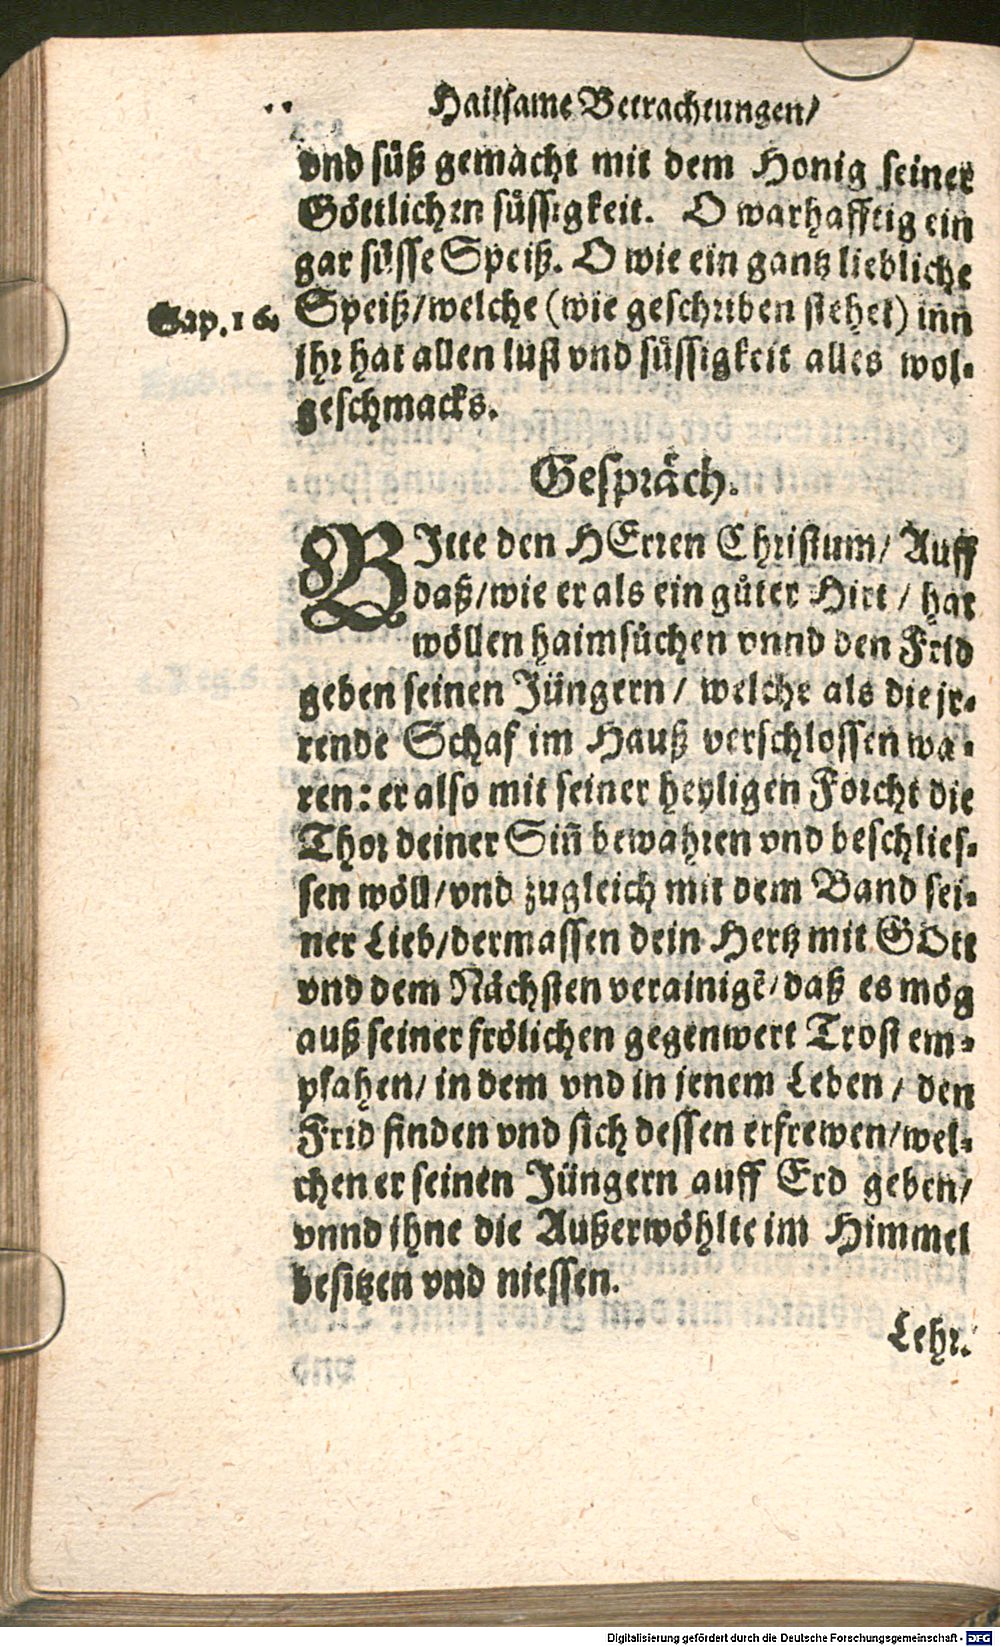 Hailsame Betrachtungen/
vnd süß gemacht mit dem Honig seiner
Göttlichen süssigkeit. O warhafftig ein
gar süsse Speiß. O wie ein gantz liebliche
Speiß/welche (wie geschriben stehet) inn
Sap. 16.
jhr hat allen lust vnd süssigkeit alles wol-
geschmacks.
Gespräch.
BItte den HErren Christum/ Auff
daß/wie er als ein gůter Hirt / hat
wöllen haimsůchen vnnd den Frid
geben seinen Jüngern / welche als die jr-
rende Schaf im Hauß verschlossen wa-
ren: er also mit seiner heyligen Forcht die
Thor deiner Siñ bewahren vnd beschlies-
sen wöll/vnd zugleich mit dem Band sei-
ner Lieb/dermassen dein Hertz mit GOtt
vnd dem Nächsten verainigẽ/daß es mög
auß seiner frölichen gegenwert Trost em-
pfahen/ in dem vnd in jenem Leben / den
Frid finden vnd sich dessen erfrewen/wel-
chen er seinen Jüngern auff Erd geben/
vnnd jhne die Außerwöhlte im Himmel
besitzen vnd niessen.
Lehr.
Digitalisierung gefördert durch die Deutsche Forschungsgemeinschaft - DFG